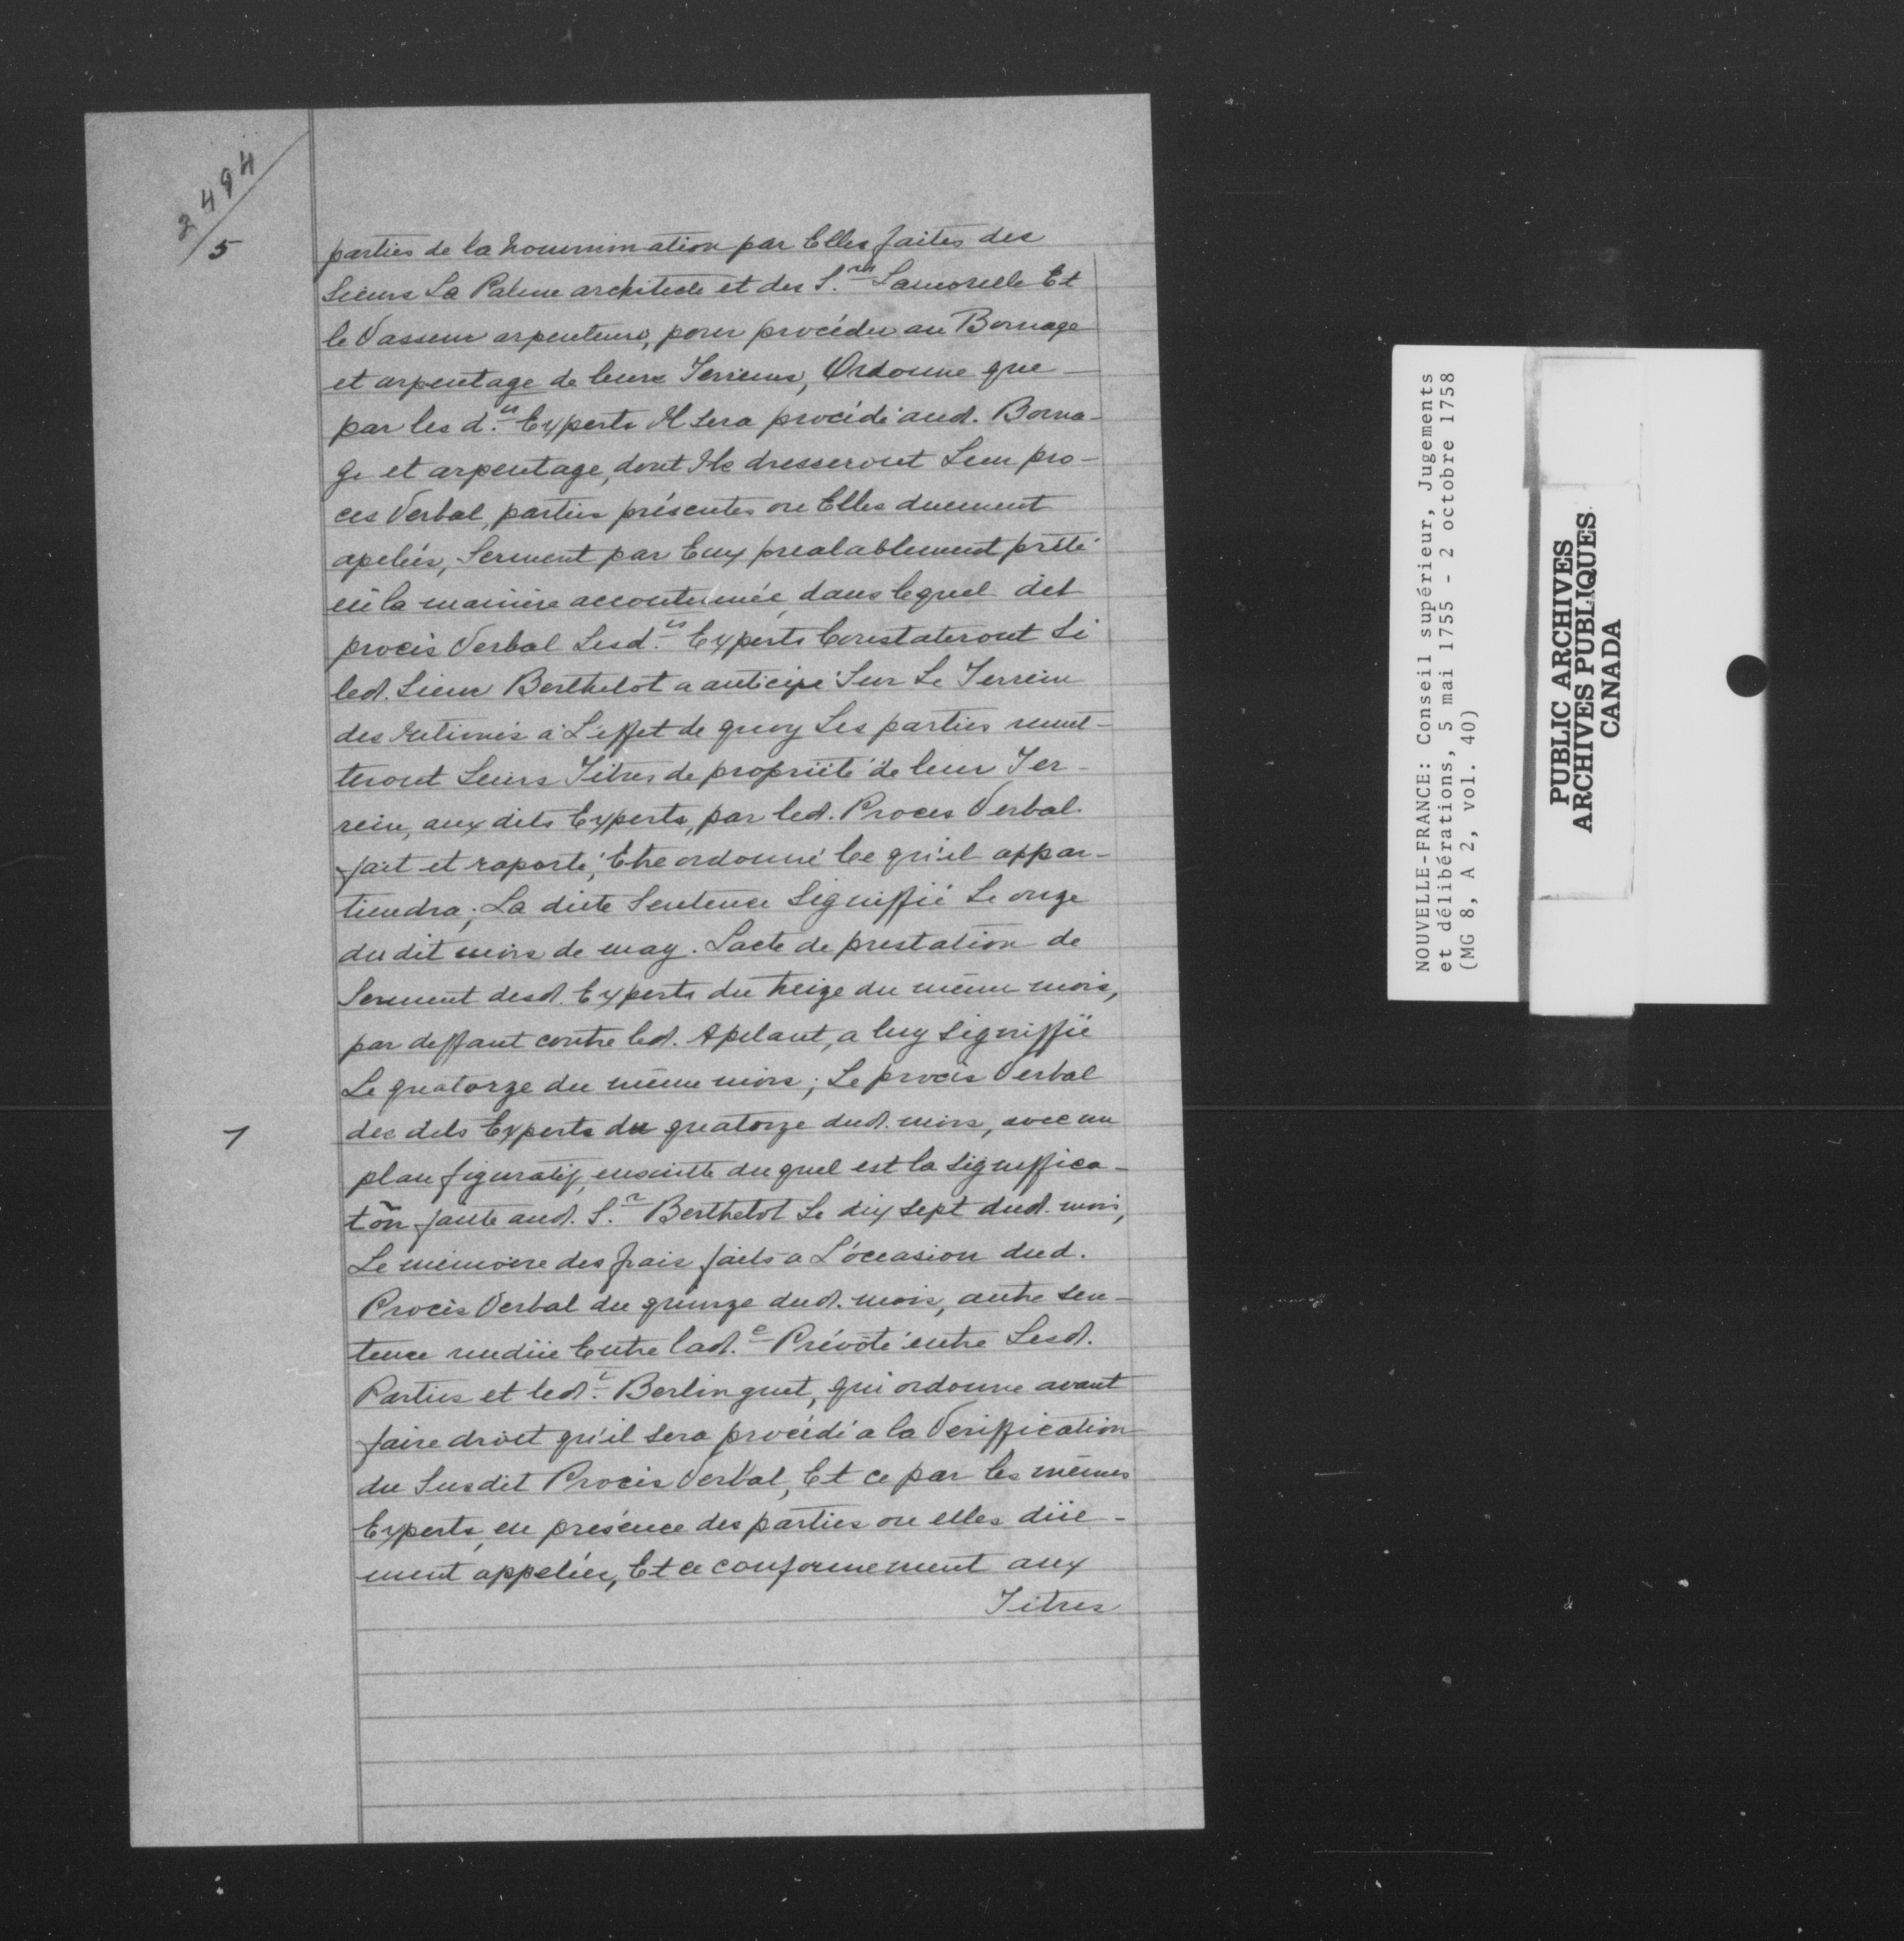 2494
5
parties de la nommination par Elles faites des
Sieurs La Palme architecte et des S.rs Lamorille Et
le Vasseur arpenteurs, pour procéder au Bornage
et arpentage de leurs Terreins, Ordonne que
par les d.es Experts Il sera procédé aud. Borna-
ge et arpentage, dont Ils dresseront Leur pro-
ces Verbal, parties présentes ou Elles duement
apelées, Serment par Eux prealablement prêté
en la manière accoutumée, dans lequel dit
procès Verbal Lesd.es Experts Constateront Si
led. Sieur Berthelot a anticipé Sur Le Terrein
des Intimés à L'effet de quoy Les parties remet-
teront Leurs Titres de propriété de leur Ter-
rein, aux dits Experts, par led. Proces Verbal
fait et raporté, Etre ordonné Ce qu'il appar-
tiendra; La dite Sentence Signiffié Le onze
du dit mois de may. Lacte de prestation de
Serment desd. Experts du treize du même mois,
par deffaut contre led. Apelant, a luy Signiffié
Le quatorze du même mois; Le procès Verbal
des dits Experts du quatorze dud. mois, avec un
plan figuratif, ensuitte du quel est la Signiffica-
tõn faite aud. S.r Berthelot Le dix sept dud. mois,
Le mémoire des frais faits a L'occasion dud.
Procès Verbal du quinze dud. mois, autre Sen-
tence rendüe Entre lad.e Prévôté entre Lesd.
Parties et led.t Berlinguet, qui ordonne avant
faire droit qu'il sera procédé a la Veriffication
du Susdit Procès Verbal, Et ce par les mêmes
Experts, en présence des parties ou elles düe-
ment appelées, Et ce conformement aux
Titres
1
NOUVELLE-FRANCE: Conseil supérieur, Jugements
et délibérations, 5 mai 1755 - 2 octobre 1758
(MG 8, A 2, vol. 40)
PUBLIC ARCHIVES
ARCHIVES PUBLIQUES
CANADA